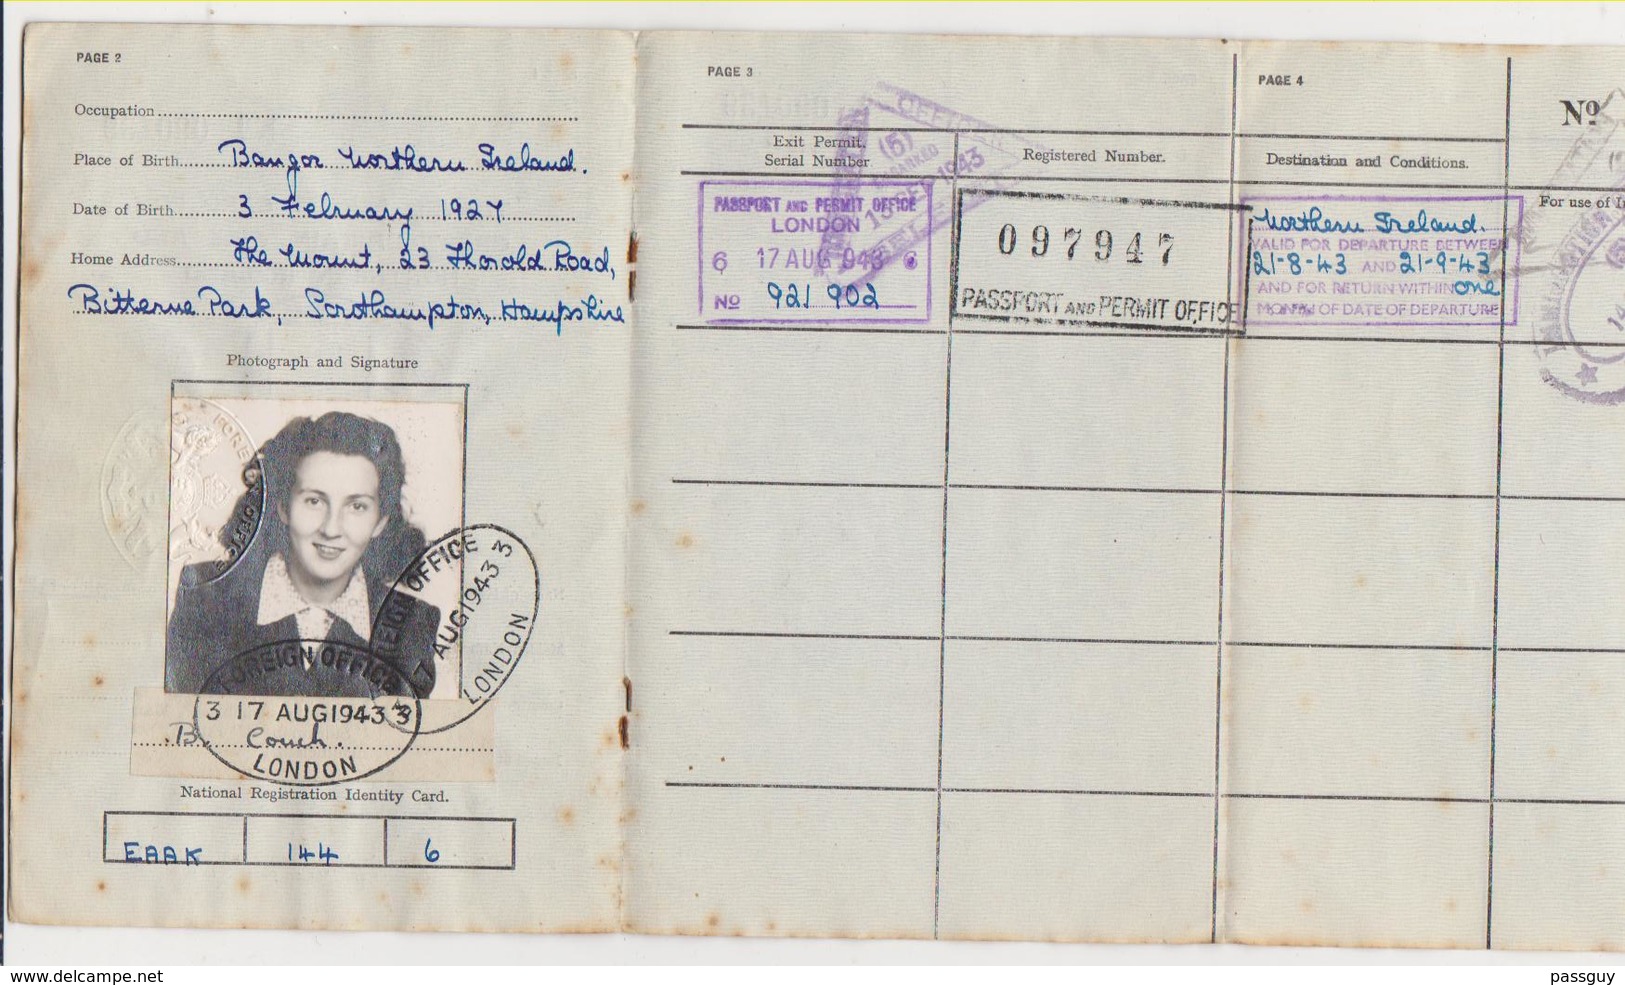 PAGE 2
Occupation
Place of Birth Bangor Northern Ireland.
Date of Birth 3 February 1927
Home Address The Mount, 23 Thorold Road,
Bitterne Park, Southampton, Hampshire
Photograph and Signature
FOREIGN OFFICE
17 AUG 1943 3
LONDON
FOREIGN OFFICE
3 17 AUG 1943 3
B. Couch.
LONDON
National Registration Identity Card.
EAAK 144 6
PAGE 3
Exit Permit.
Serial Number
Registered Number.
OFFICER
(5)
EMBARKED
SEP 1943
PASSPORT AND PERMIT OFFICE
LONDON
6 17 AUG 943 6
No 921 902
097947
PASSPORT AND PERMIT OFFICE
PAGE 4
Destination and Conditions.
Northern Ireland.
VALID FOR DEPARTURE BETWEEN
21-8-43 AND 21-9-43
AND FOR RETURN WITHIN one
MONTH OF DATE OF DEPARTURE
No
For use of
IMMIGRATION
(5)
14
www.delcampe.net
passguy